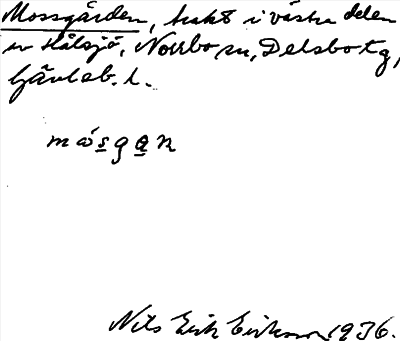 Mossgården, trakt i västra delen
av Hålsjö, Norrbo sn, Delsbo tg,
Gävleb. l.
mósgan
Nils Erik Eriksson 1936.